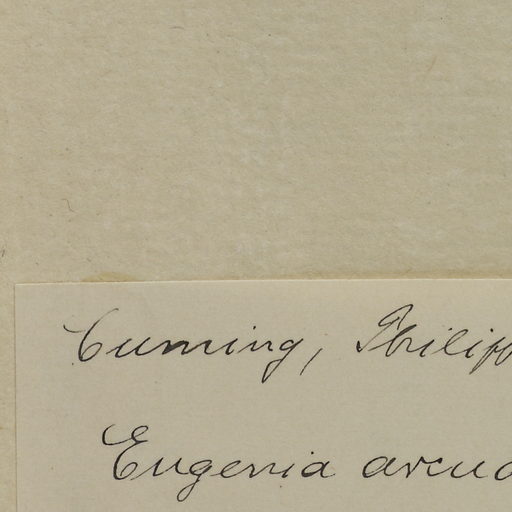 Cuming, Philipp
Eugenia arcua